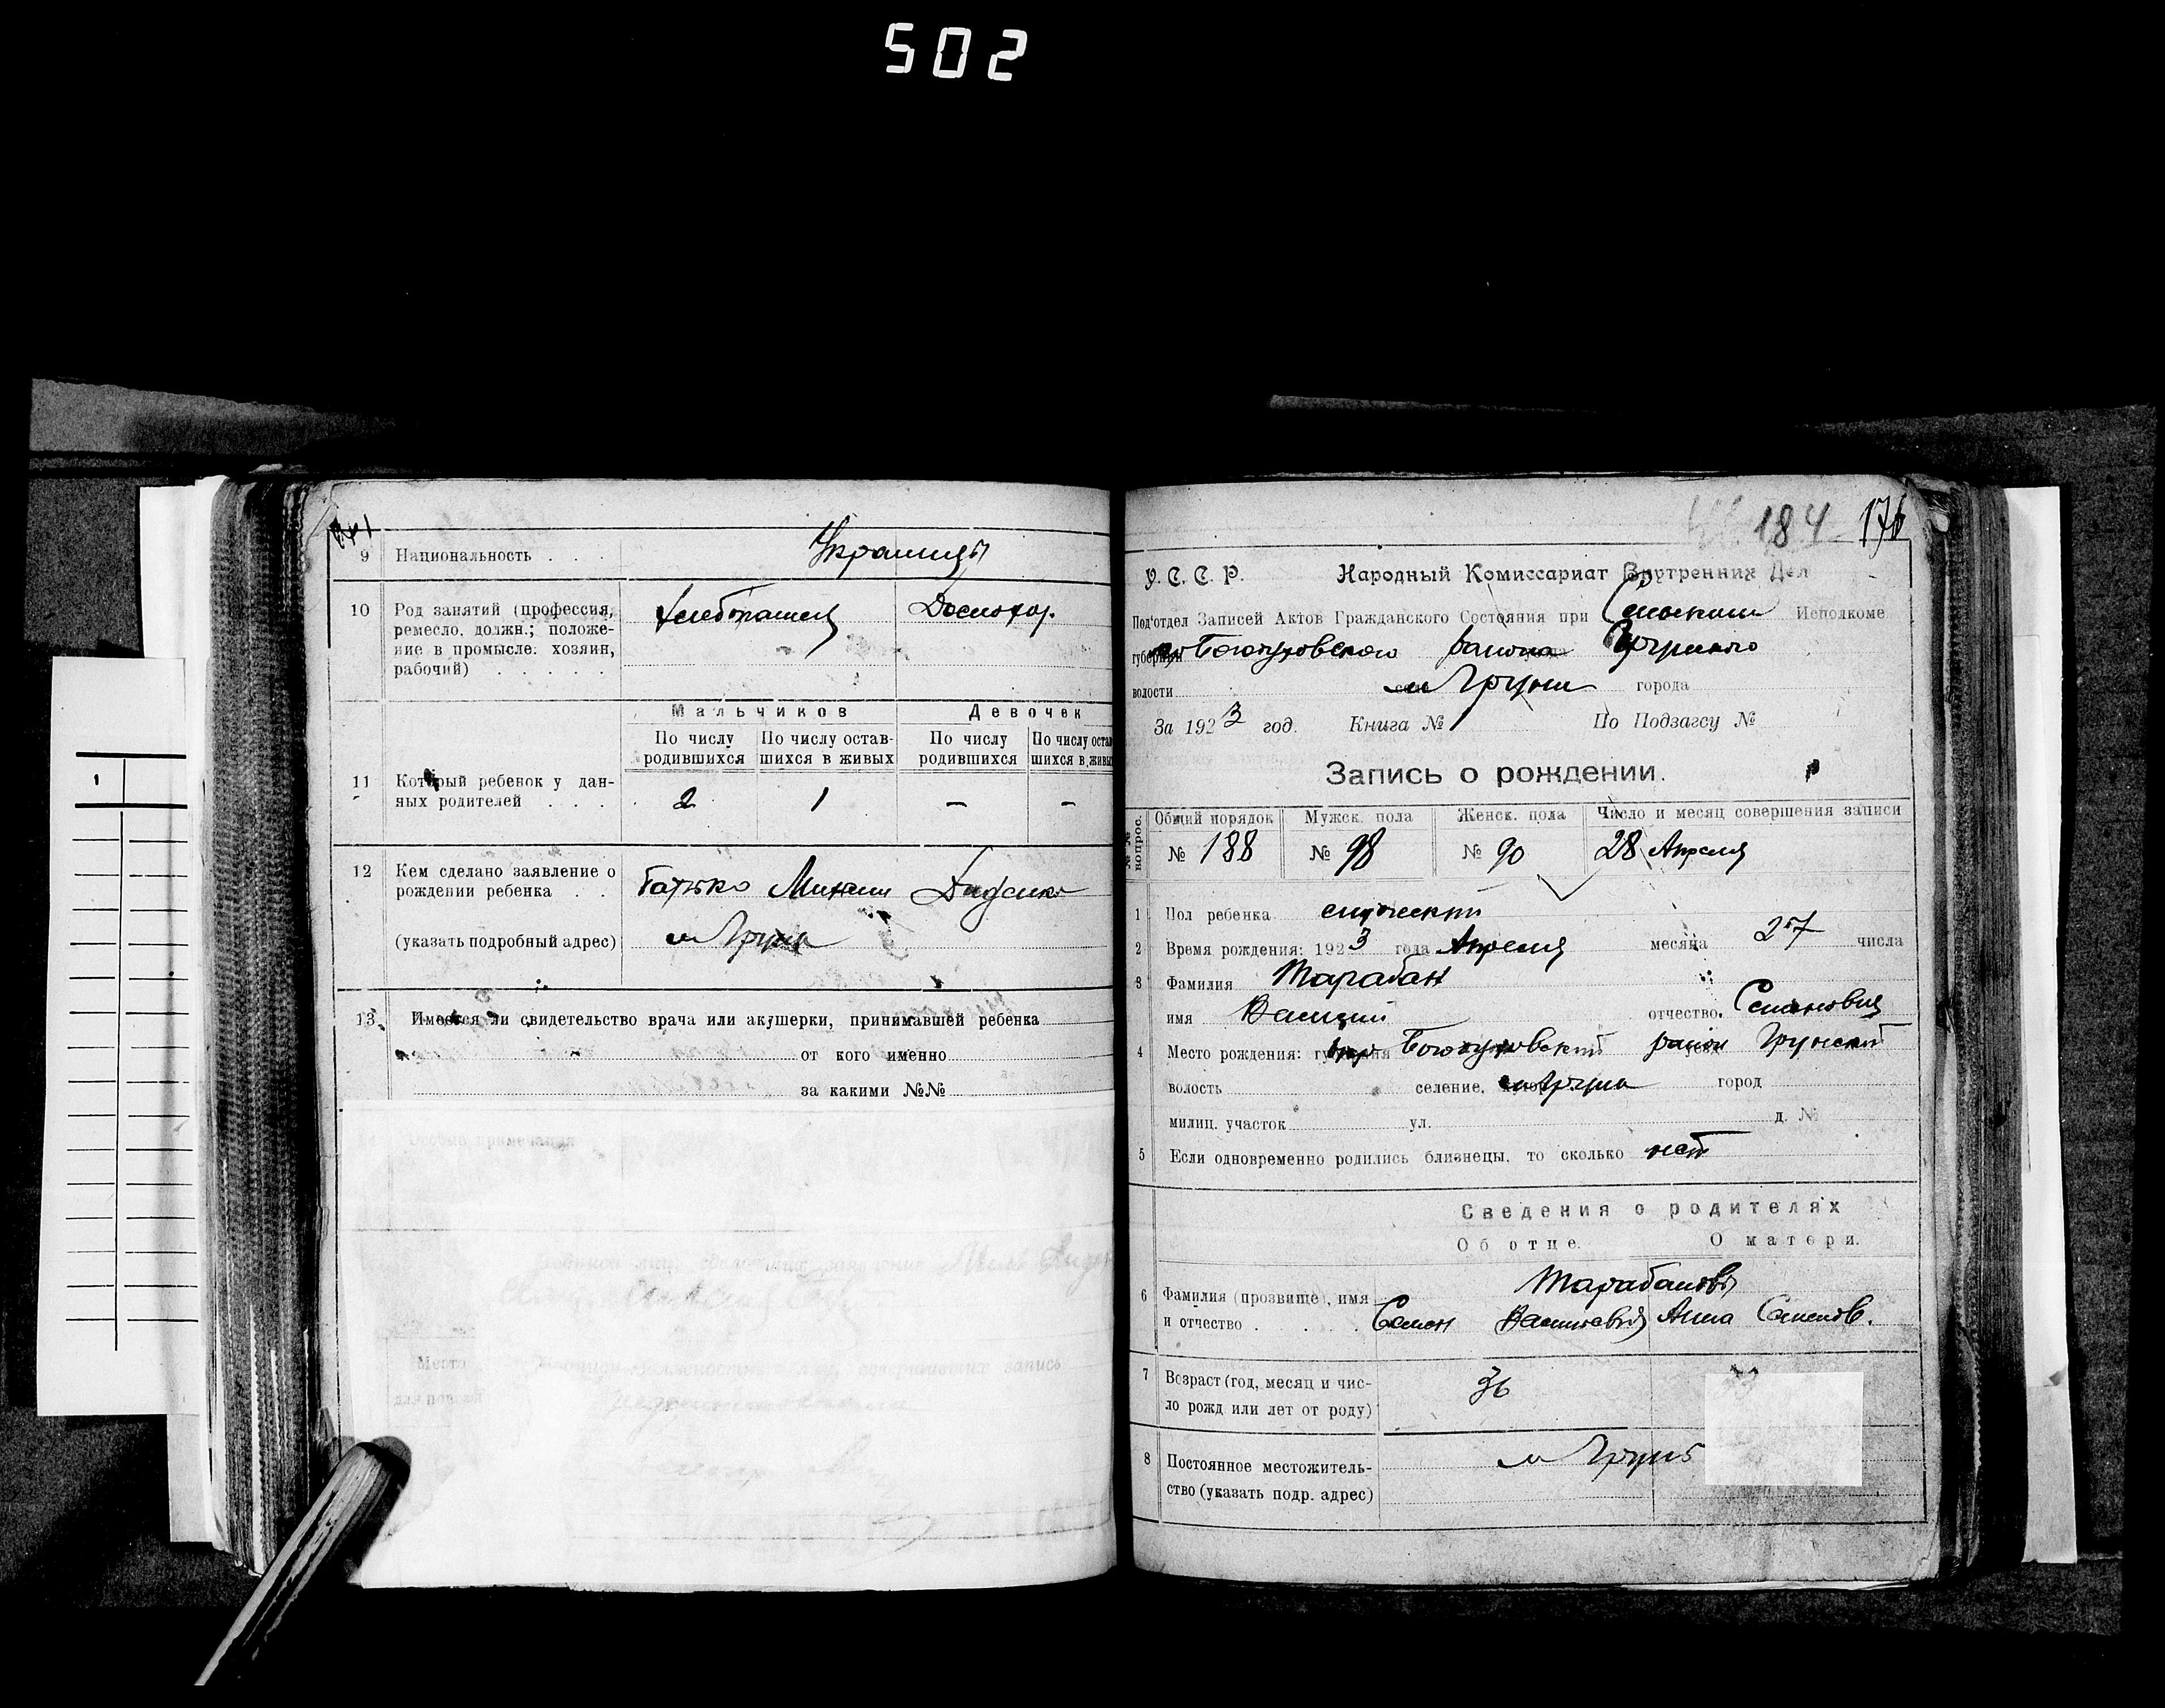 502
9 Национальность . . . Украинцы
10 Род занятий (профессия,
ремесло, должн.; положе-
ние в промысле: хозяин,
рабочий) . . . . .
хлебопашец
Домохоз.
Мальчиков Девочек
По числу родившихся По числу остав-шихся в живых По числу родившихся По числу оста шихся в живы
11 Который ребенок у дан-
ных родителей . . . 2 1 — —
12 Кем сделано заявление о
рождении ребенка . . Батько Михаил Диденко
(указать подробный адрес) м Грунь
13 Имеется ли свидетельство врача или акушерки, принимавшей ребенка
от кого именно
за какими №№
Особые примечания
184 176
У. С. С. Р. Народный Комиссариат Внутренних Дел
Под'отдел Записей Актов Гражданского Состояния при Исполкоме
губернии Богодуховского района Грунского
волости м Грунь города
За 1923 год. Книга № 1 По Подзагсу №
Запись о рождении.
№№ вопрос. Общий порядок Мужск. пола Женск. пола Число и месяц совершения записи
№ 188 № 98 № 90 28 Апреля
1 Пол ребенка мужеский
2 Время рождения: 1923 года Апреля месяца 27 числа
3 Фамилия Тарабан
имя Василий отчество. Семенович
4 Место рождения: губерния Богодуховский район Грунский
волость селение, м Грунь город
милиц. участок ул. д. №
5 Если одновременно родились близнецы, то сколько нет
Сведения о родителях
Об отце. О матери.
6 Фамилия (прозвище), имя Тарабановы
и отчество . . . . Семен Васильевич Анна Семенов.
7 Возраст (год, месяц и чис-
ло рожд или лет от роду) 36
8 Постоянное местожитель-
ство (указать подр. адрес) м Грунь